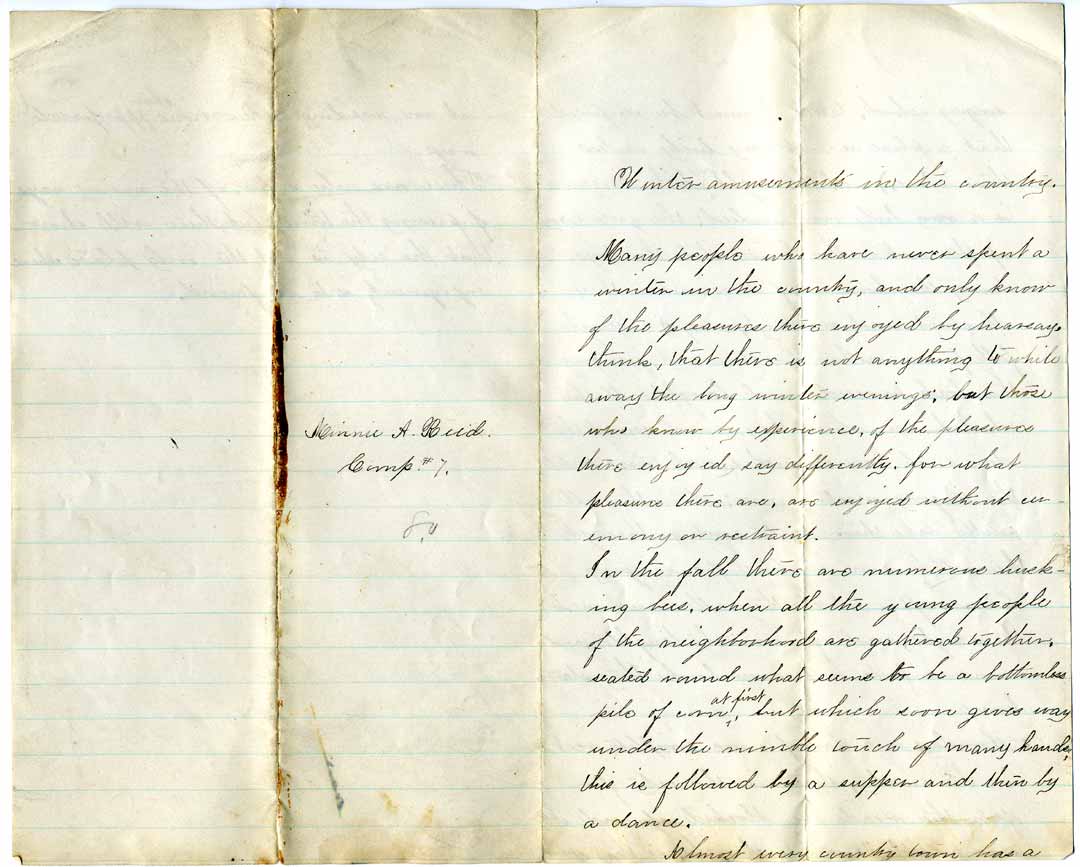 Minnie A. Reid.
Comp. #7.
8.0
Winter amusements in the country.
Many people who have never spent a
winter in the country, and only know
of the pleasures there enjoyed by hearsay.
think, that there is not anything to while
away the long winter evenings; but those
who know by experience, of the pleasures
there enjoyed, say differently. for what
pleasures there are, are enjoyed without cer
emony or restraint.
In the fall there are numerous husk-
ing bees, when all the young people
of the neighborhood are gathered together,
seated round what seems to be a bottomless
pile of corn at first, but which soon gives way
under the nimble touch of many hands,
this is followed by a supper and then by
a dance.
Almost every country town has a